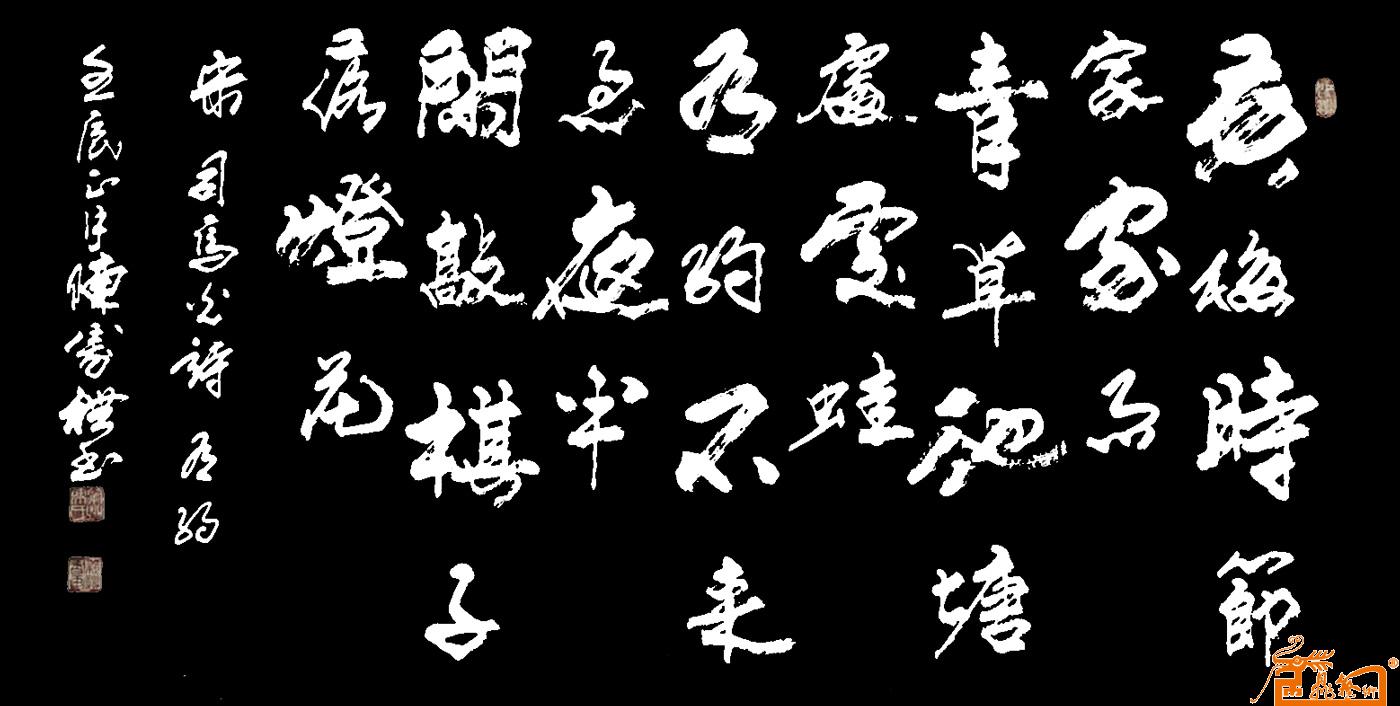 黃梅時節
家家雨
青草池塘
處處蛙
有約不来
過夜半
閑敲棋子
落燈花
宋司馬光詩有約
壬辰正月陳書